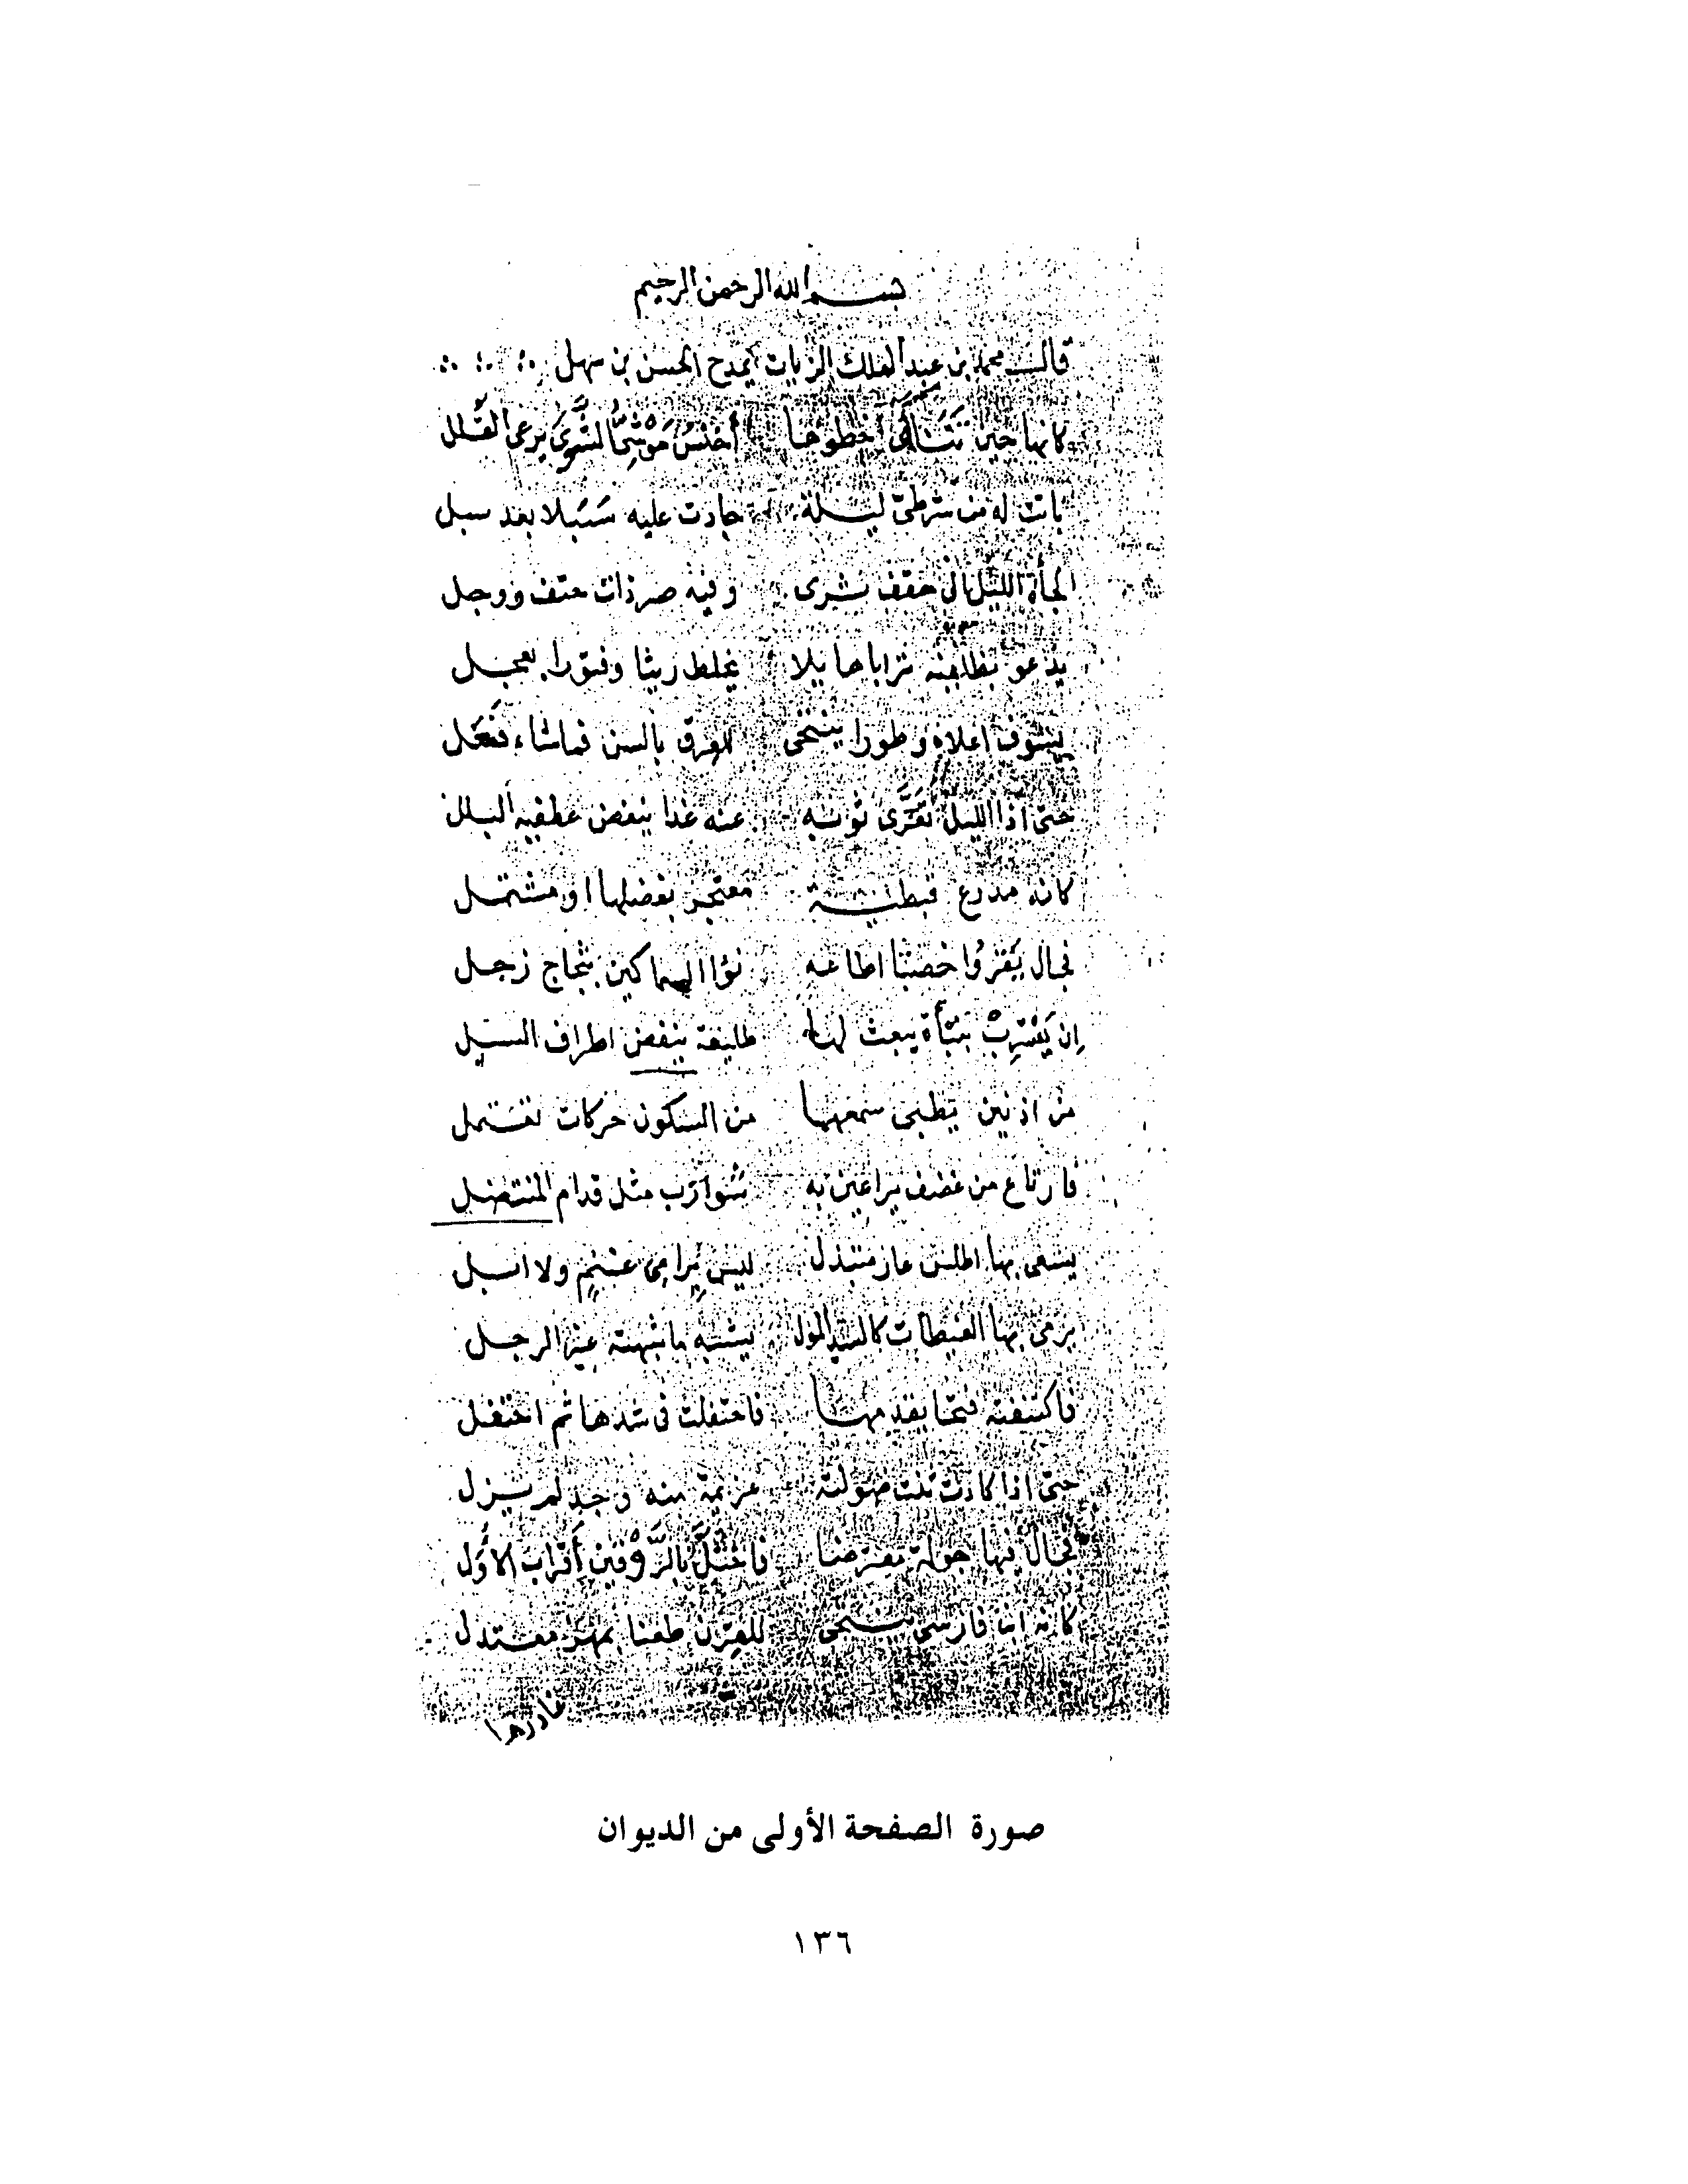 بسم الله الرحمن الرحيم
قال محمد بن عبد الملك الزيات يمدح الحسن بن سهل
كانها حين تَنَاءَى خطوها أخنسُ مَوْشِىُّ الشَّوَى يرعى القُلل
باتت له من شرطىّ ليلة جادت عليه سَبَلا بعد سبل
الجأه الليل الى حقف شرى وفيه صر ذات حتف ووجل
يدعو بظلفيه ترابا هايلا يخلط ريثا وفتورا بعجل
يسوف اعلاه وطورا ينتحى للعرق بالسن فما شاء فَعَل
حتى اذا الليل تَعَرَّى ثوبه عنه غدا ينفض عطفيه البلل
كانه مدرع قبطية معتجر بفضلها او مشتمل
فجال يَقْرُوا خصبا اطاعه نوّا السماكين بثجاج زجل
اِن يَقْتَرِبْ نَبْأَة يبعث لها طليعة ينفض اطراف السبل
من اذنين يطبى سمعهما من السكون حركات تعتمل
فارتاع من غضف يراعين به شوازب مثل قدام المنتضل
يسعى بها اطلس عار متبذل ليس بِرامى غنمٍ ولا ابل
يرمى بها الغيطان كالسيد المول يشبه ما شبهته غير الرجل
فاكتنفته فتحا يقدمها فاحتفلت فى شدها ثم احتفل
حتى اذا كادت ثنت صولته عزيمة منه وجد لم يزل
فجال فيها جولة معترضا فاغتلَّ بالرَّوْقين أَقراب الاُوَل
كانه ابنا فارسى ينتحى للقرن طعنا بمهز معتدل
غادرها
صورة الصفحة الأولى من الديوان
١٣٦